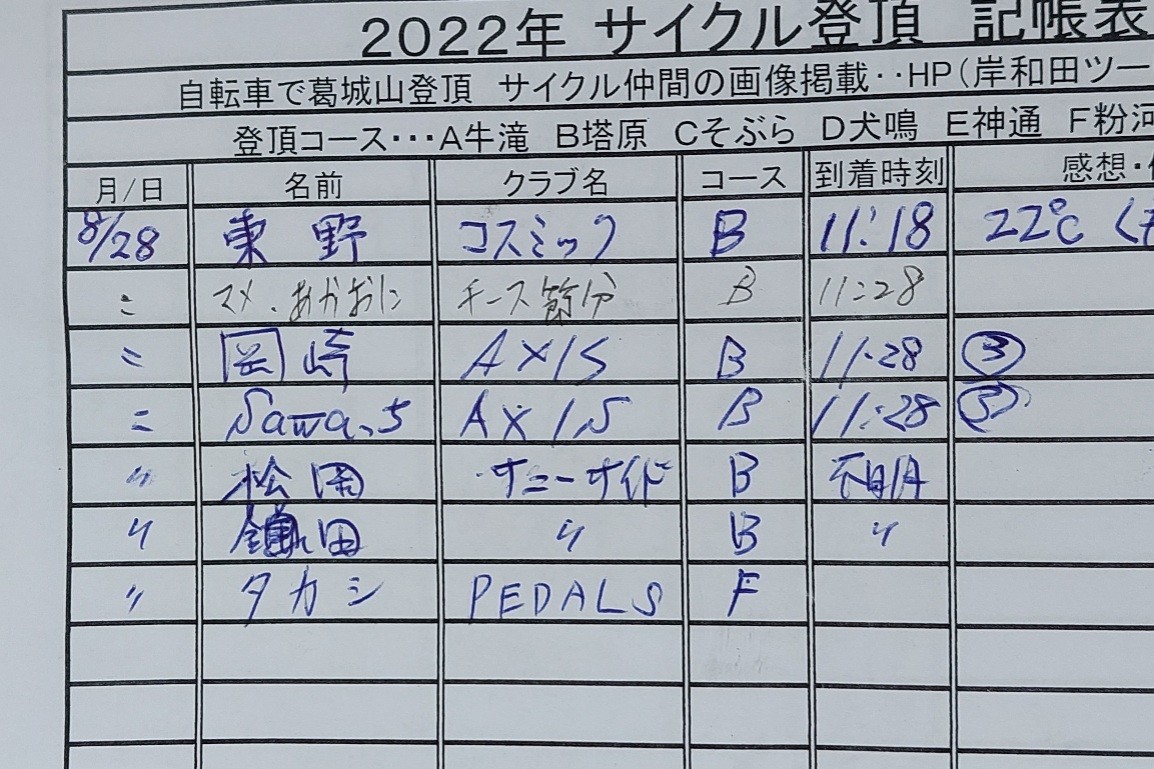 2022年 サイクル登頂 記帳表
自転車で葛城山登頂 サイクル仲間の画像掲載‥HP(岸和田ツー
登頂コース･･･A牛滝 B塔原 Cそぶら D犬鳴 E神通 F粉河
月/日 名前 クラブ名 コース 到着時刻 感想・
8/28 東野 コスミック B 11:18 22℃
〃 マメ、あかおに チース節分 B 11:28
〃 岡崎 AX15 B 11:28 ③
〃 Sawa、5 AX15 B 11:28 ③
〃 松岡 サニーサイド B 不明
〃 鎌田 〃 B 〃
〃 タカシ PEDALS F